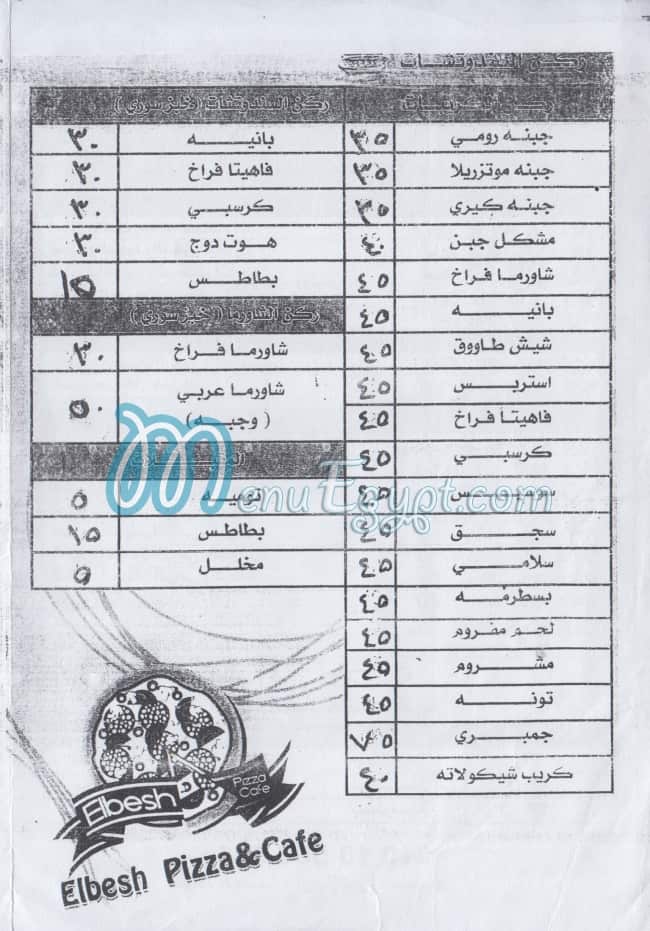 ركن السندوتشات
ركن الكريبات
جبنه رومي ٣٥
جبنه موتزريلا ٣٥
جبنه كيري ٣٥
مشكل جبن ٤٠
شاورما فراخ ٤٥
بانيه ٤٥
شيش طاووق ٤٥
استربس ٤٥
فاهيتا فراخ ٤٥
كرسبي ٤٥
سوسيس ٤٥
سجق ٤٥
سلامي ٤٥
بسطرمه ٤٥
لحم مفروم ٤٥
مشروم ٤٥
تونه ٤٥
جمبري ٧٥
كريب شيكولاته ٤٠
ركن السندوتشات (خبز سوري)
بانيه ٣٠
فاهيتا فراخ ٣٠
كرسبي ٣٠
هوت دوج ٣٠
بطاطس ١٥
ركن الشاورما (خبز سوري)
شاورما فراخ ٣٠
شاورما عربي
(وجبه) ٥٠
توميه ٥
بطاطس ١٥
مخلل ٥
MenuEgypt.com
Elbesh Pizza Cafe
Elbesh Pizza&Cafe